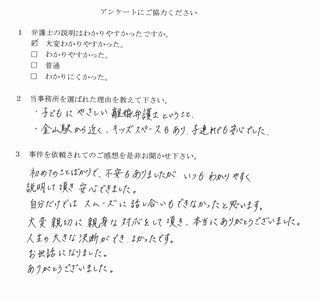 アンケートにご協力ください
1 弁護士の説明はわかりやすかったですか。
☑ 大変わかりやすかった。
□ わかりやすかった。
□ 普通
□ わかりにくかった。
2 当事務所を選ばれた理由を教えて下さい。
・子どもにやさしい離婚弁護士ということ
・金山駅から近く、キッズスペースもあり、子連れでも安心でした。
3 事件を依頼されてのご感想を是非お聞かせ下さい。
初めてのことばかりで、不安もありましたが いつも わかりやすく
説明して頂き 安心できました。
自分だけでは スムーズに 話し合いもできなかったと思います。
大変 親切に 親身な 対応をして頂き、本当にありがとうございました。
人生の大きな決断ができ よかったです。
お世話になりました。
ありがとうございました。